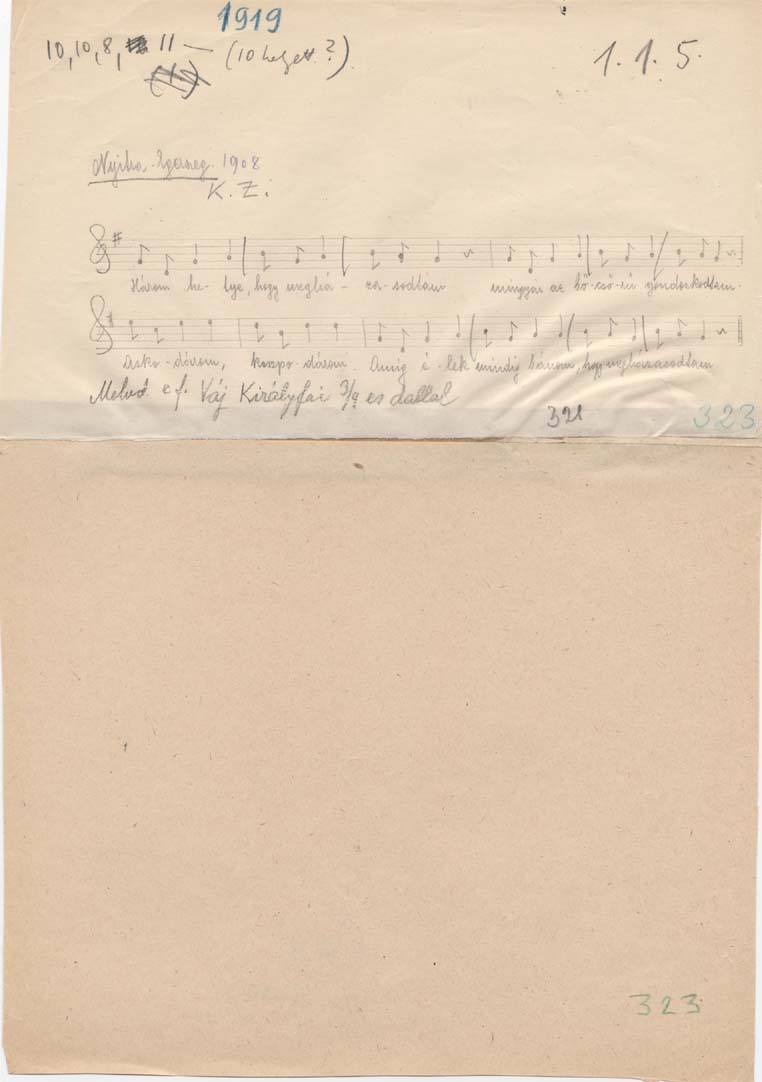 1919
10, 10, 8, 11 — (10 helyett?)
1. 1. 5.
Nyitra-Egerszeg. 1908
K. Z.
Három he- tye, hogy meghá- za- sodtam mingyár az bő-cső-rű gondoskodtam.
Asko- dárom, koszpo- dárom. Amíg é- lek mindig bánom, hogy megházasodtam
cf. Váj Királyfai 3/a es dallal
321
323
323